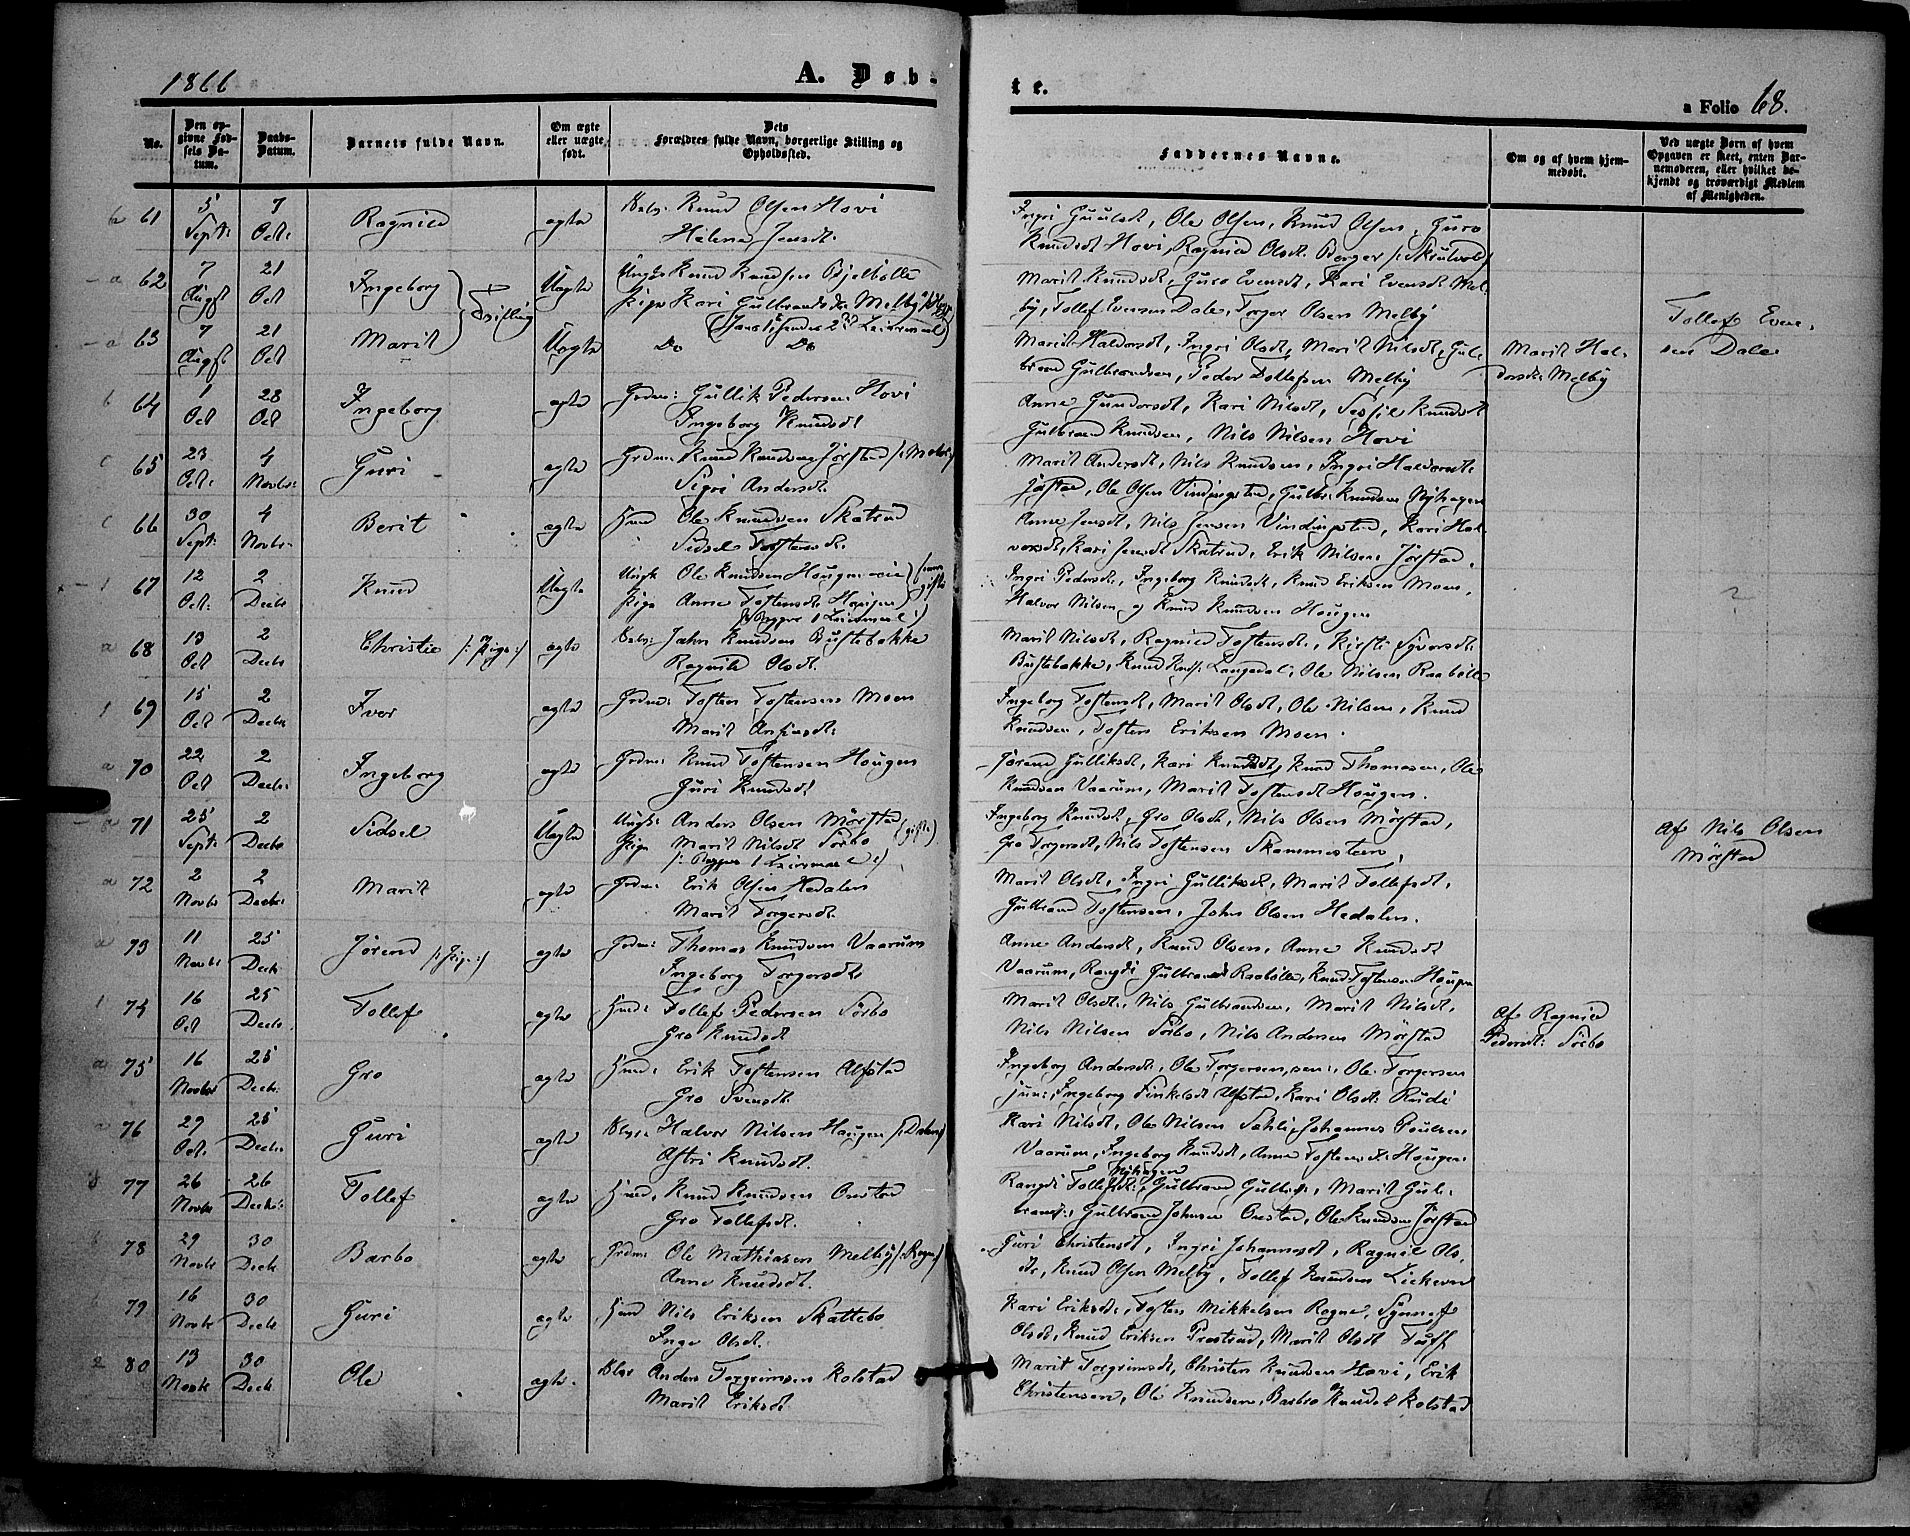 1866
A. Døb-
te.
a Folio 68.
No.
Den op-
givne Fød-
sels Da-
tum.
Daabs-
Datum.
Barnets fulde Navn.
Om ægte
eller uægte
født.
Dets
Forældres fulde Navn, borgerlige Stilling og
Opholdssted.
Faddernes Navne.
Om og af hvem hjem-
medøbt.
Ved uægte Børn af hvem
Opgaven er skeet, enten Bar-
nemoderen, eller hvilket be-
kjendt og troværdigt Medlem
af Menigheden.
61 5 Sept: 7 Oct: Ragnild ægte Knud Olsen Hovi
Helene Jensdt.
Ingri Guulsdt, Ole Olsen, Knud Olsen, Guro
Knudsdt Hovi, Ragnild Olsdt. Berger
62 7 Augst 21 Oct Ingeborg Tvilling Uægte Ungk Knud Knudsen
Pige Kari Gulbrandsdt Melby
Marit Knudsdt, Guro Evensdt, Kari Evensdt Mel-
by, Tollef Evensen Dale, Torger Olsen Melby
Tollef Even-
sen Dale
63 7 Augst 21 Oct Marit Uægte Do Do
Marit Haldorsdt, Ingri Olsdt, Marit Nilsdt, Gul-
brand Gulbrandsen, Peder Tollefsen Melby
Marit Hal-
dorsdt Melby
64 1 Oct 28 Oct Ingeborg ægte Grdm: Gullik Pedersen Hovi
Ingeborg Knudsdt
Anne Gundersdt, Kari Nilsdt, Knudsdt
Gulbrand Knudsen, Nils Nilsen Hovi
65 23 Oct: 4 Novbr: Guri ægte Grdm: Knud Knudsen Jørstad
Sigri Andersdt.
Marit Andersdt, Nils Knudsen, Ingri Haldorsdt
Jørstad, Ole Olsen Vindingstad, Gulbr: Knudsen Nyhagen
66 30 Sept: 4 Novbr: Berit ægte Hmd Ole Knudsen Skatrud
Sidsel Tostensdt.
Anne Jensdt, Nils Jensen Vindingstad, Kari Hal-
vorsdt, Kari Jensdt Skatrud, Erik Nilsen Jørstad.
67 12 Oct: 2 Decbr Knud Uægte Ungk Ole Knudsen
Pige Anne Tostensdt
Ingri Pedersdt, Ingeborg Knudsdt, Knud Eriksen Moen,
Halvor Nilsen og Knud Knudsen Hougen
?
68 13 Oct 2 Decbr Christie /: Pige :/ ægte John Knudsen Bustebakke
Ragnild Olsdt.
Marit Nilsdt, Ragnild Tostensdt, Kirsti Syversdt
Bustebakke, Knud Langedal, Ole Nilsen Raabølle
69 15 Oct 2 Decbr Iver ægte Grdm: Tosten Tostensen Moen
Marit
Ingeborg Tostensdt, Marit Olsdt, Ole Nilsen, Knud
Knudsen, Tosten Eriksen Moen.
70 22 Oct 2 Decbr: Ingeborg ægte Grdm: Knud Tostensen Hougen
Guri Knudsdt
Jørend Gulliksdt, Kari Knudsdt, Knud Thomasen, Ole
Knudsen Vaarum, Marit Tostensdt Hougen.
71 25 Sept: 2 Decbr Sidsel Uægte Ungk: Anders Olsen Mørstad (gifte)
Pige Marit Nilsdt Sørbo
Ingeborg Knudsdt, Gro Olsdt, Nils Olsen Mørstad,
Gro Torgersdt, Nils Tostensen Skammesteen,
Af Nils Olsen
Mørstad
72 2 Novbr 2 Decbr: Marit ægte Grdm: Erik Olsen Hedalen
Marit Torgersdt.
Marit Olsdt, Ingri Gulliksdt, Marit Tollefsdt,
Gulbrand Tostensen, John Olsen Hedalen.
73 11 Novbr 25 Decbr Jørend /: Pige :/ ægte Grdm: Thomas Knudsen Vaarum
Ingeborg Torgersdt.
Anne Andersdt, Knud Olsen, Anne Knudsdt
Vaarum, Rangdi Gulbrandsdt Raabølle, Knud Tostensen Hougen
74 16 Oct 25 Decbr Tollef ægte Hmd: Tollef Pedersen Sørbo
Gro Knudsdt
Marit Olsdt, Nils Gulbrandsen, Marit Nilsdt,
Nils Nilsen Sørbo, Nils Andersen Mørstad
Af Ragnild
Pedersdt: Sørbo
75 16 Novbr 25 Decbr: Gro ægte Hmd: Erik Tostensen Alfstad
Gro Svensdt.
Ingeborg Andersdt, Ole Torgersen sen:, Ole Torgersen
jun:, Ingeborg Finkelsdt Alfstad, Kari Olsdt: Rudi
76 29 Oct. 25 Decbr: Guri ægte Halvor Nilsen Haugen
Astri Knudsdt.
Kari Nilsdt, Ole Nilsen Sahli, Johannes Poulsen
Vaarum, Ingeborg Knudsdt, Anne Tostensdt: Hougen.
77 26 Novbr 26 Decbr: Tollef ægte Hmd, Knud Knudsen Onstad
Gro Tollefsdt.
Nyhagen
Rangdi Tollefsdt:, Gulbrand, Marit Gul-
brand:, Gulbrand Johnsen Onstad, Ole Knudsen Jørstad
78 29 Novbr 30 Decbr Barbo ægte Grdm: Ole Mathiasen Melby /: Rogne :/
Anne Knudsdt.
Guri Christensdt, Ingri Johannesdt, Ragnil Ols-
dt, Knud Olsen Melby, Tollef Knudsen
79 16 Novbr 30 Decbr Guri ægte Hmd Nils Eriksen Skattebo
Inge Olsdt.
Kari Eriksdt, Tosten Mikkelsen Rogne, Synnef
Olsdt, Knud Eriksen Prestrud, Marit Olsdt Tuff
80 13 Novbr 30 Decbr Ole ægte Anders Torgrimsen Kolstad
Marit Eriksdt
Marit Torgrimsdt, Christen Knudsen Hovi, Erik
Christensen, Ole Knudsen, Barbro Knudsdt Kolstad